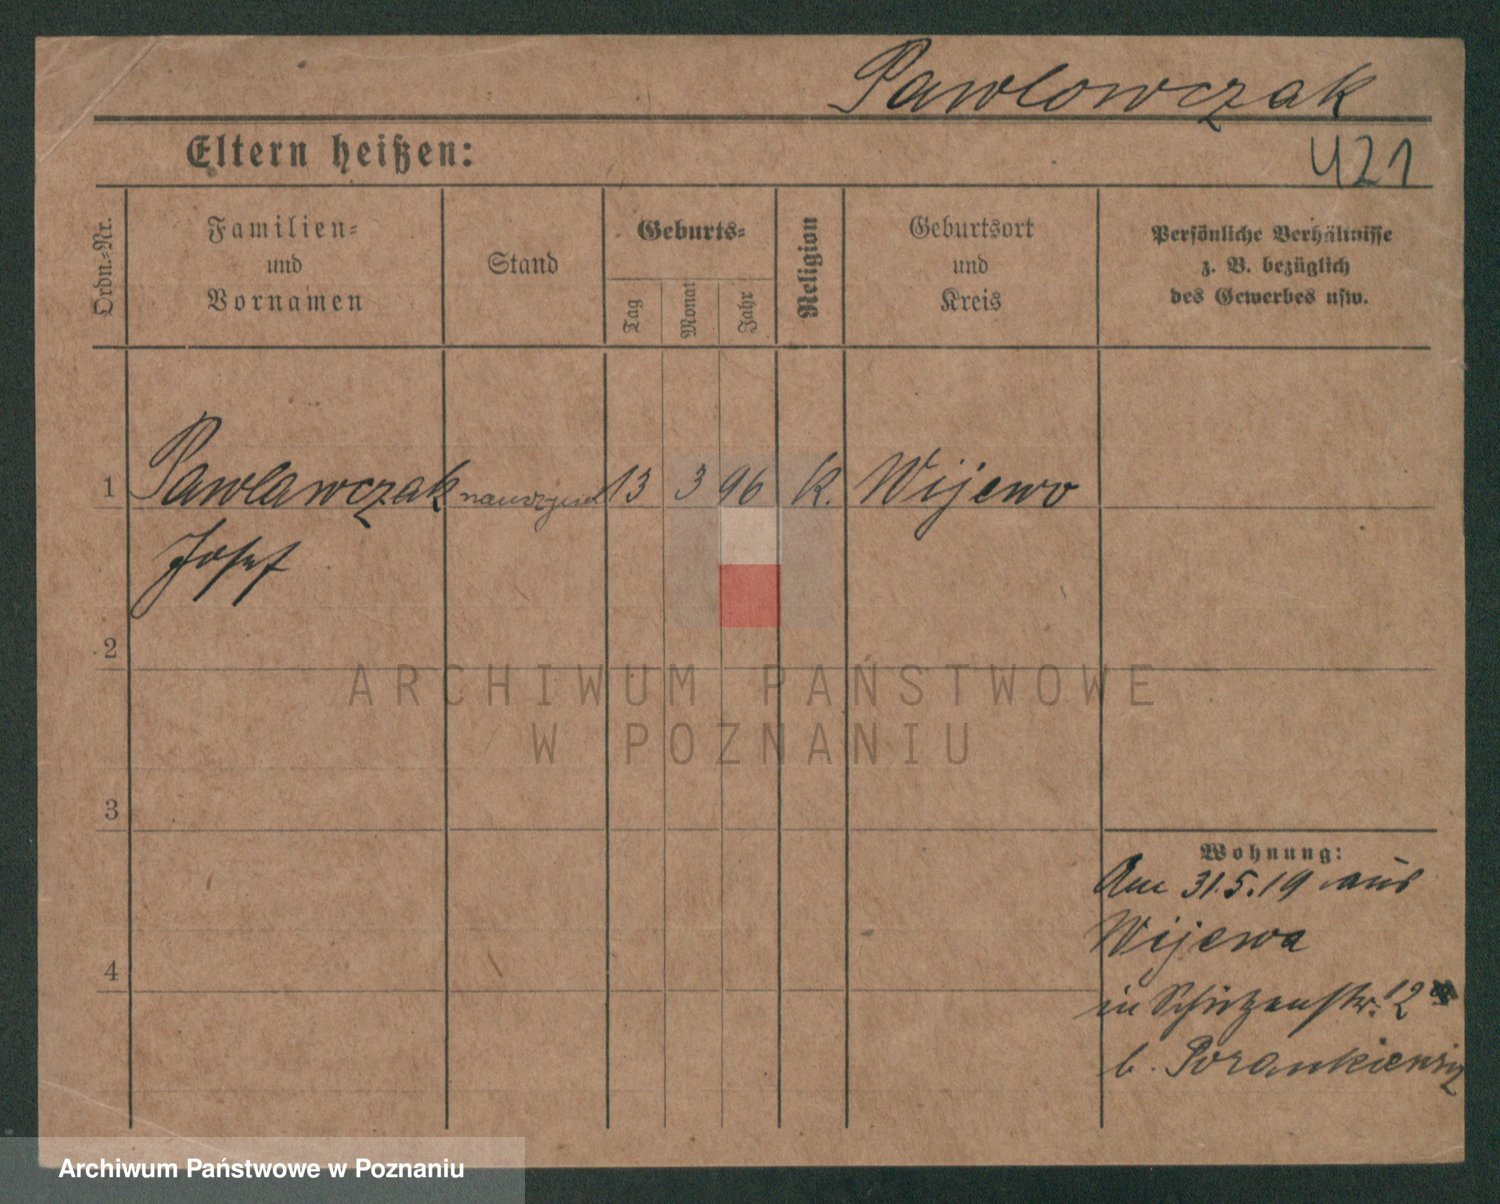 Pawlowczak
Eltern heißen:
421
Ordn.-Nr.
Familien-
und
Vornamen
Stand
Geburts-
Tag
Monat
Jahr
Religion
Geburtsort
und
Kreis
Persönliche Verhältnisse
z. B. bezüglich
des Gewerbes usw.
1 Pawlawczak 13 3 96 k. Wijewo
Josef
2
ARCHIWUM PAŃSTWOWE
W POZNANIU
3
Wohnung:
Am 31.5.19 aus
Wijewa
4
in Schützenstr. 12
b. Porankiewicz
Archiwum Państwowe w Poznaniu